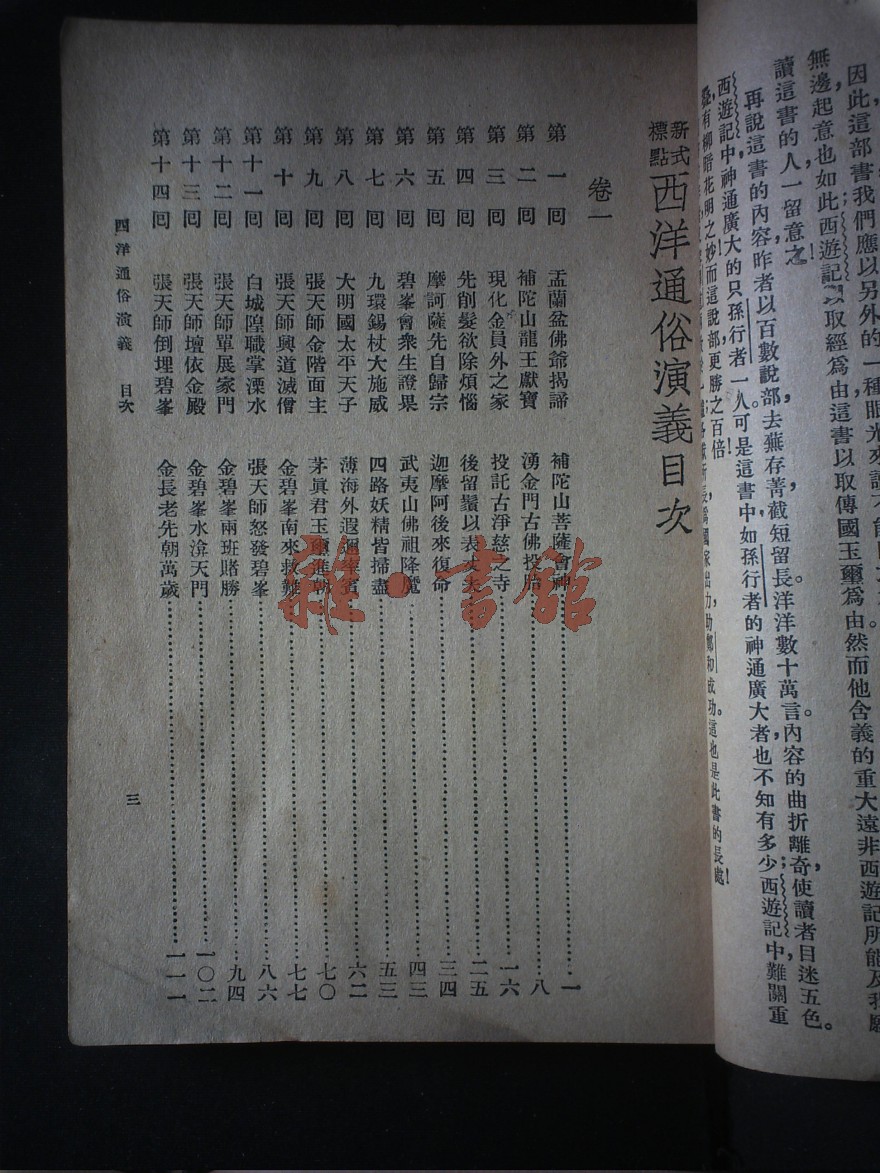 因此這部書我們應以另外的一種眼光來讀
無邊起意也如此西遊記以取經爲由這書以取傳國玉璽爲由然而他含義的重大遠非西遊記所能及我願
讀這書的人一留意之
再說這書的內容昨者以百數說部去蕪存菁截短留長洋洋數十萬言。內容的曲折離奇,使讀者目迷五色。
西遊記中神通廣大的只孫行者一人可是這書中如孫行者的神通廣大者也不知有多少;西遊記中難關重
有柳暗花明之妙而這說部更勝之百倍
爲國家出力助鄭和成功。這也是此書的長處!
新式標點 西洋通俗演義目次
卷一
第一回 盂蘭盆佛爺揭諦 補陀山菩薩會神 一
第二回 補陀山龍王獻寶 湧金門古佛投胎 八
第三回 現化金員外之家 投託古淨慈之寺 一六
第四回 先削髮欲除煩惱 後留鬚以表丈夫 二五
第五回 摩訶薩先自歸宗 迦摩阿後來復命 三四
第六回 碧峯會衆生證果 武夷山佛祖降魔 四三
第七回 九環錫杖大施威 四路妖精皆掃盡 五三
第八回 大明國太平天子 薄海外遐邇率賓 六二
第九回 張天師金階面主 茅眞君玉璽進朝 七〇
第十回 張天師興道滅僧 金碧峯南來救難 七七
第十一回 白城隍職掌溧水 張天師怒發碧峯 八六
第十二回 張天師單展家門 金碧峯兩班賭勝 九四
第十三回 張天師壇依金殿 金碧峯水渰天門 一〇二
第十四回 張天師倒埋碧峯 金長老先朝萬歲 一一一
西洋通俗演義 目次
三
雜·書館